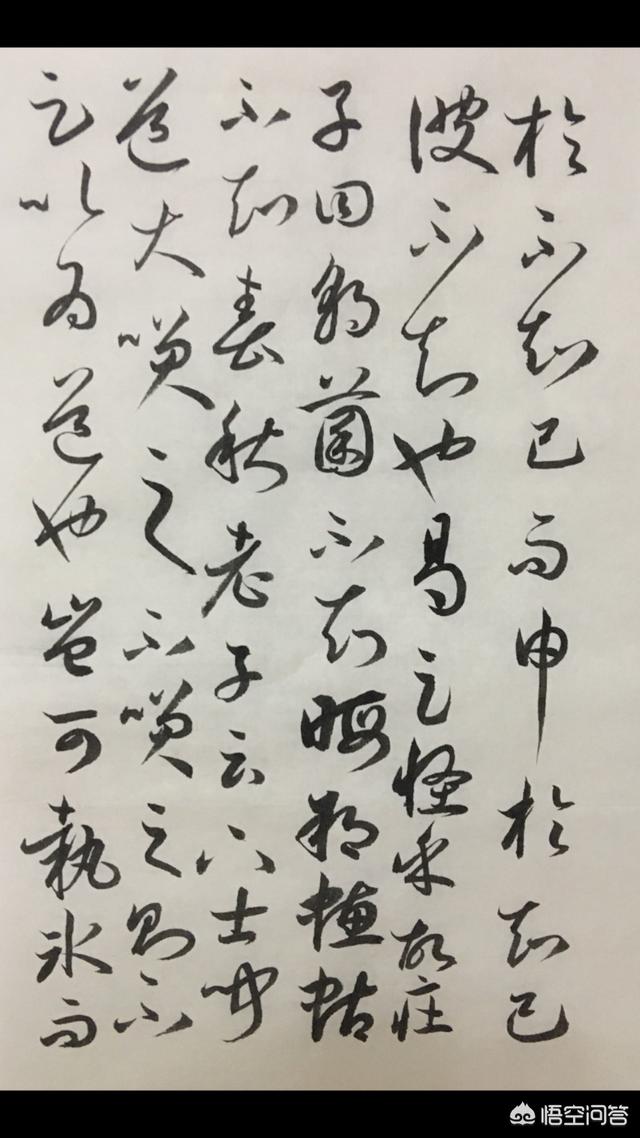 於不知己而申於知己
彼不知也曷足怪乎故莊
子曰朝菌不知晦朔蟪蛄
不知春秋老子云下士聞
道大咲之不咲之則不
足以為道也豈可執冰而
悟空问答